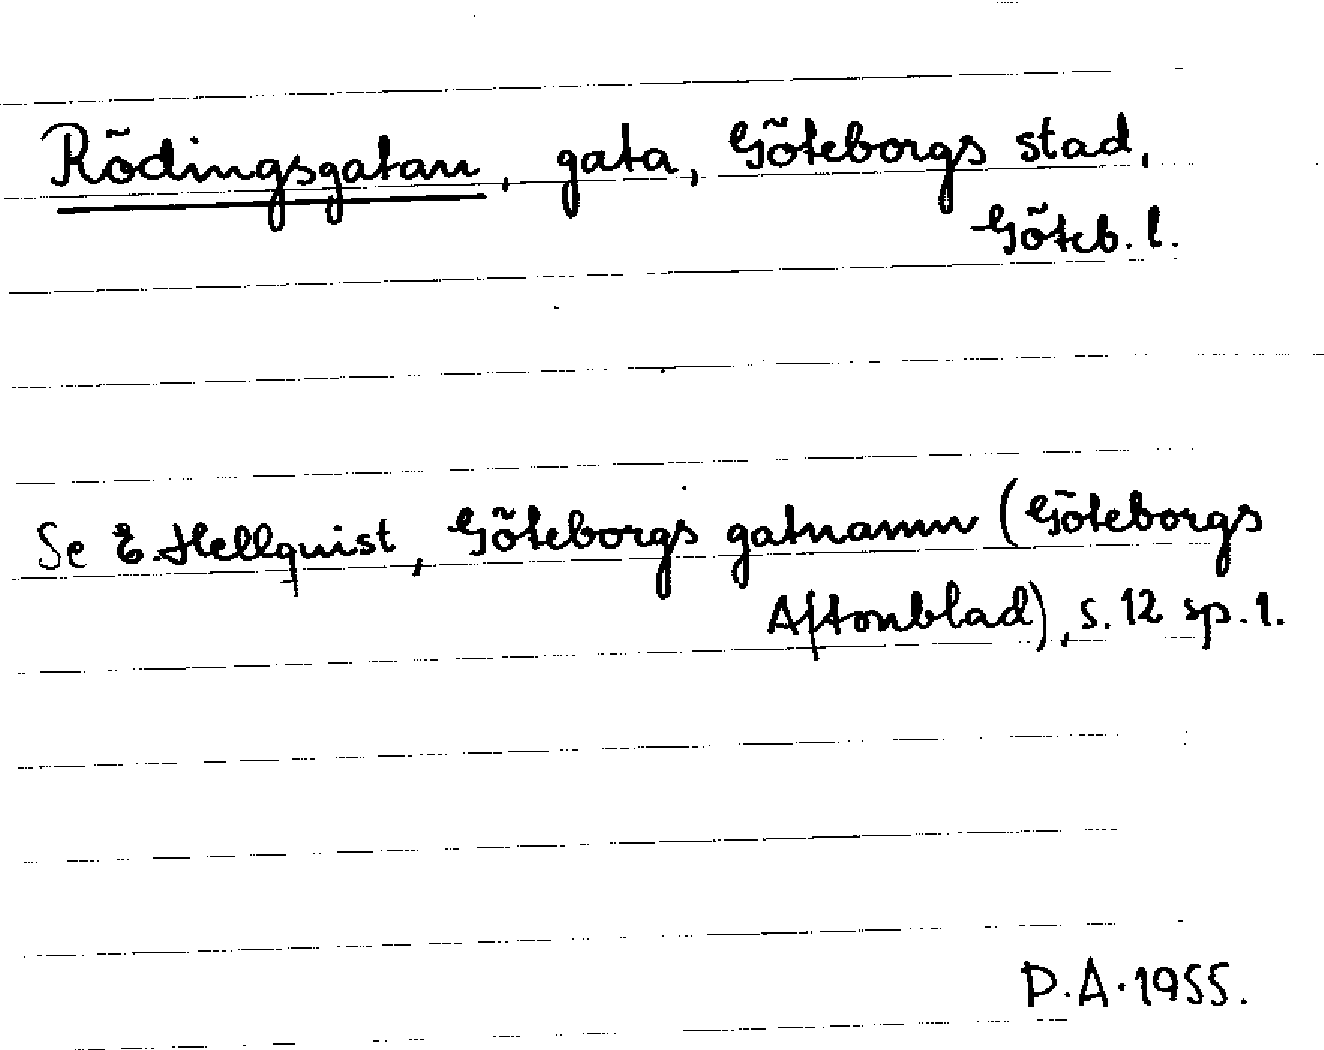 Rödingsgatan, gata, Göteborgs stad,
Göteb. l.
Se E. Hellquist, Göteborgs gatnamn (Göteborgs
Aftonblad), s. 12 sp. 1.
D.A. 1955.